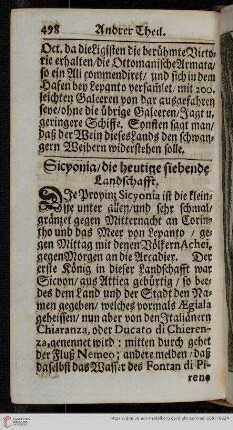 498 Andrer Theil.
Oct. da die Ligisten die berühmte Victo-
rie erhalten/ die Ottomanische Armata/
so ein Ali commendiret/ und sich in dem
Hafen bey Lepanto versamlet/ mit 200.
leichten Galeeren von dar ausgefahren
seye/ ohne die übrige Galeeren/ Jagt u.
geringere Schiffe. Sonsten sagt man/
daß der Wein dieses Lands den schwan-
gern Weibern widerstehen solle.
Sicyonia/ die heutige siebende
Landschafft.
Die Provinz Sicyonia ist die klein-
ste unter allen/ und sehr schmal/
gränzet gegen Mitternacht an Corin-
tho und das Meer von Lepanto/ ge-
gen Mittag mit denen Völkern Achei,
gegen Morgen an die Arcadier. Der
erste König in dieser Landschafft war
Sicyon/ aus Attica gebürtig/ so bee-
des dem Land und der Stadt den Na-
men gegeben/ welches vormals Ægiala
geheissen/ nun aber von den Italiänern
Chiaranza, oder Ducato di Chieren-
za, genennet wird: mitten durch gehet
der Fluß Nemeo; andere melden/ daß
daselbst das Wasser des Fontan di Pi-
rene